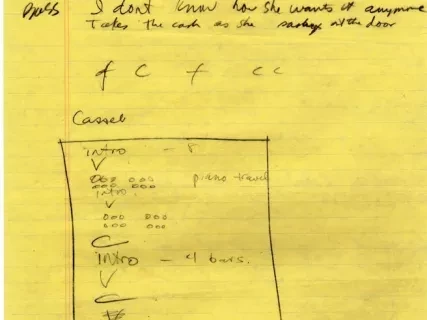 I dont know how she wants it anymore
Takes the cash as she at the door
f C f C C
intro - 8
V
000 000 piano
000 000
intro
000 000
000 000
C
intro - 4 bars.
V
C